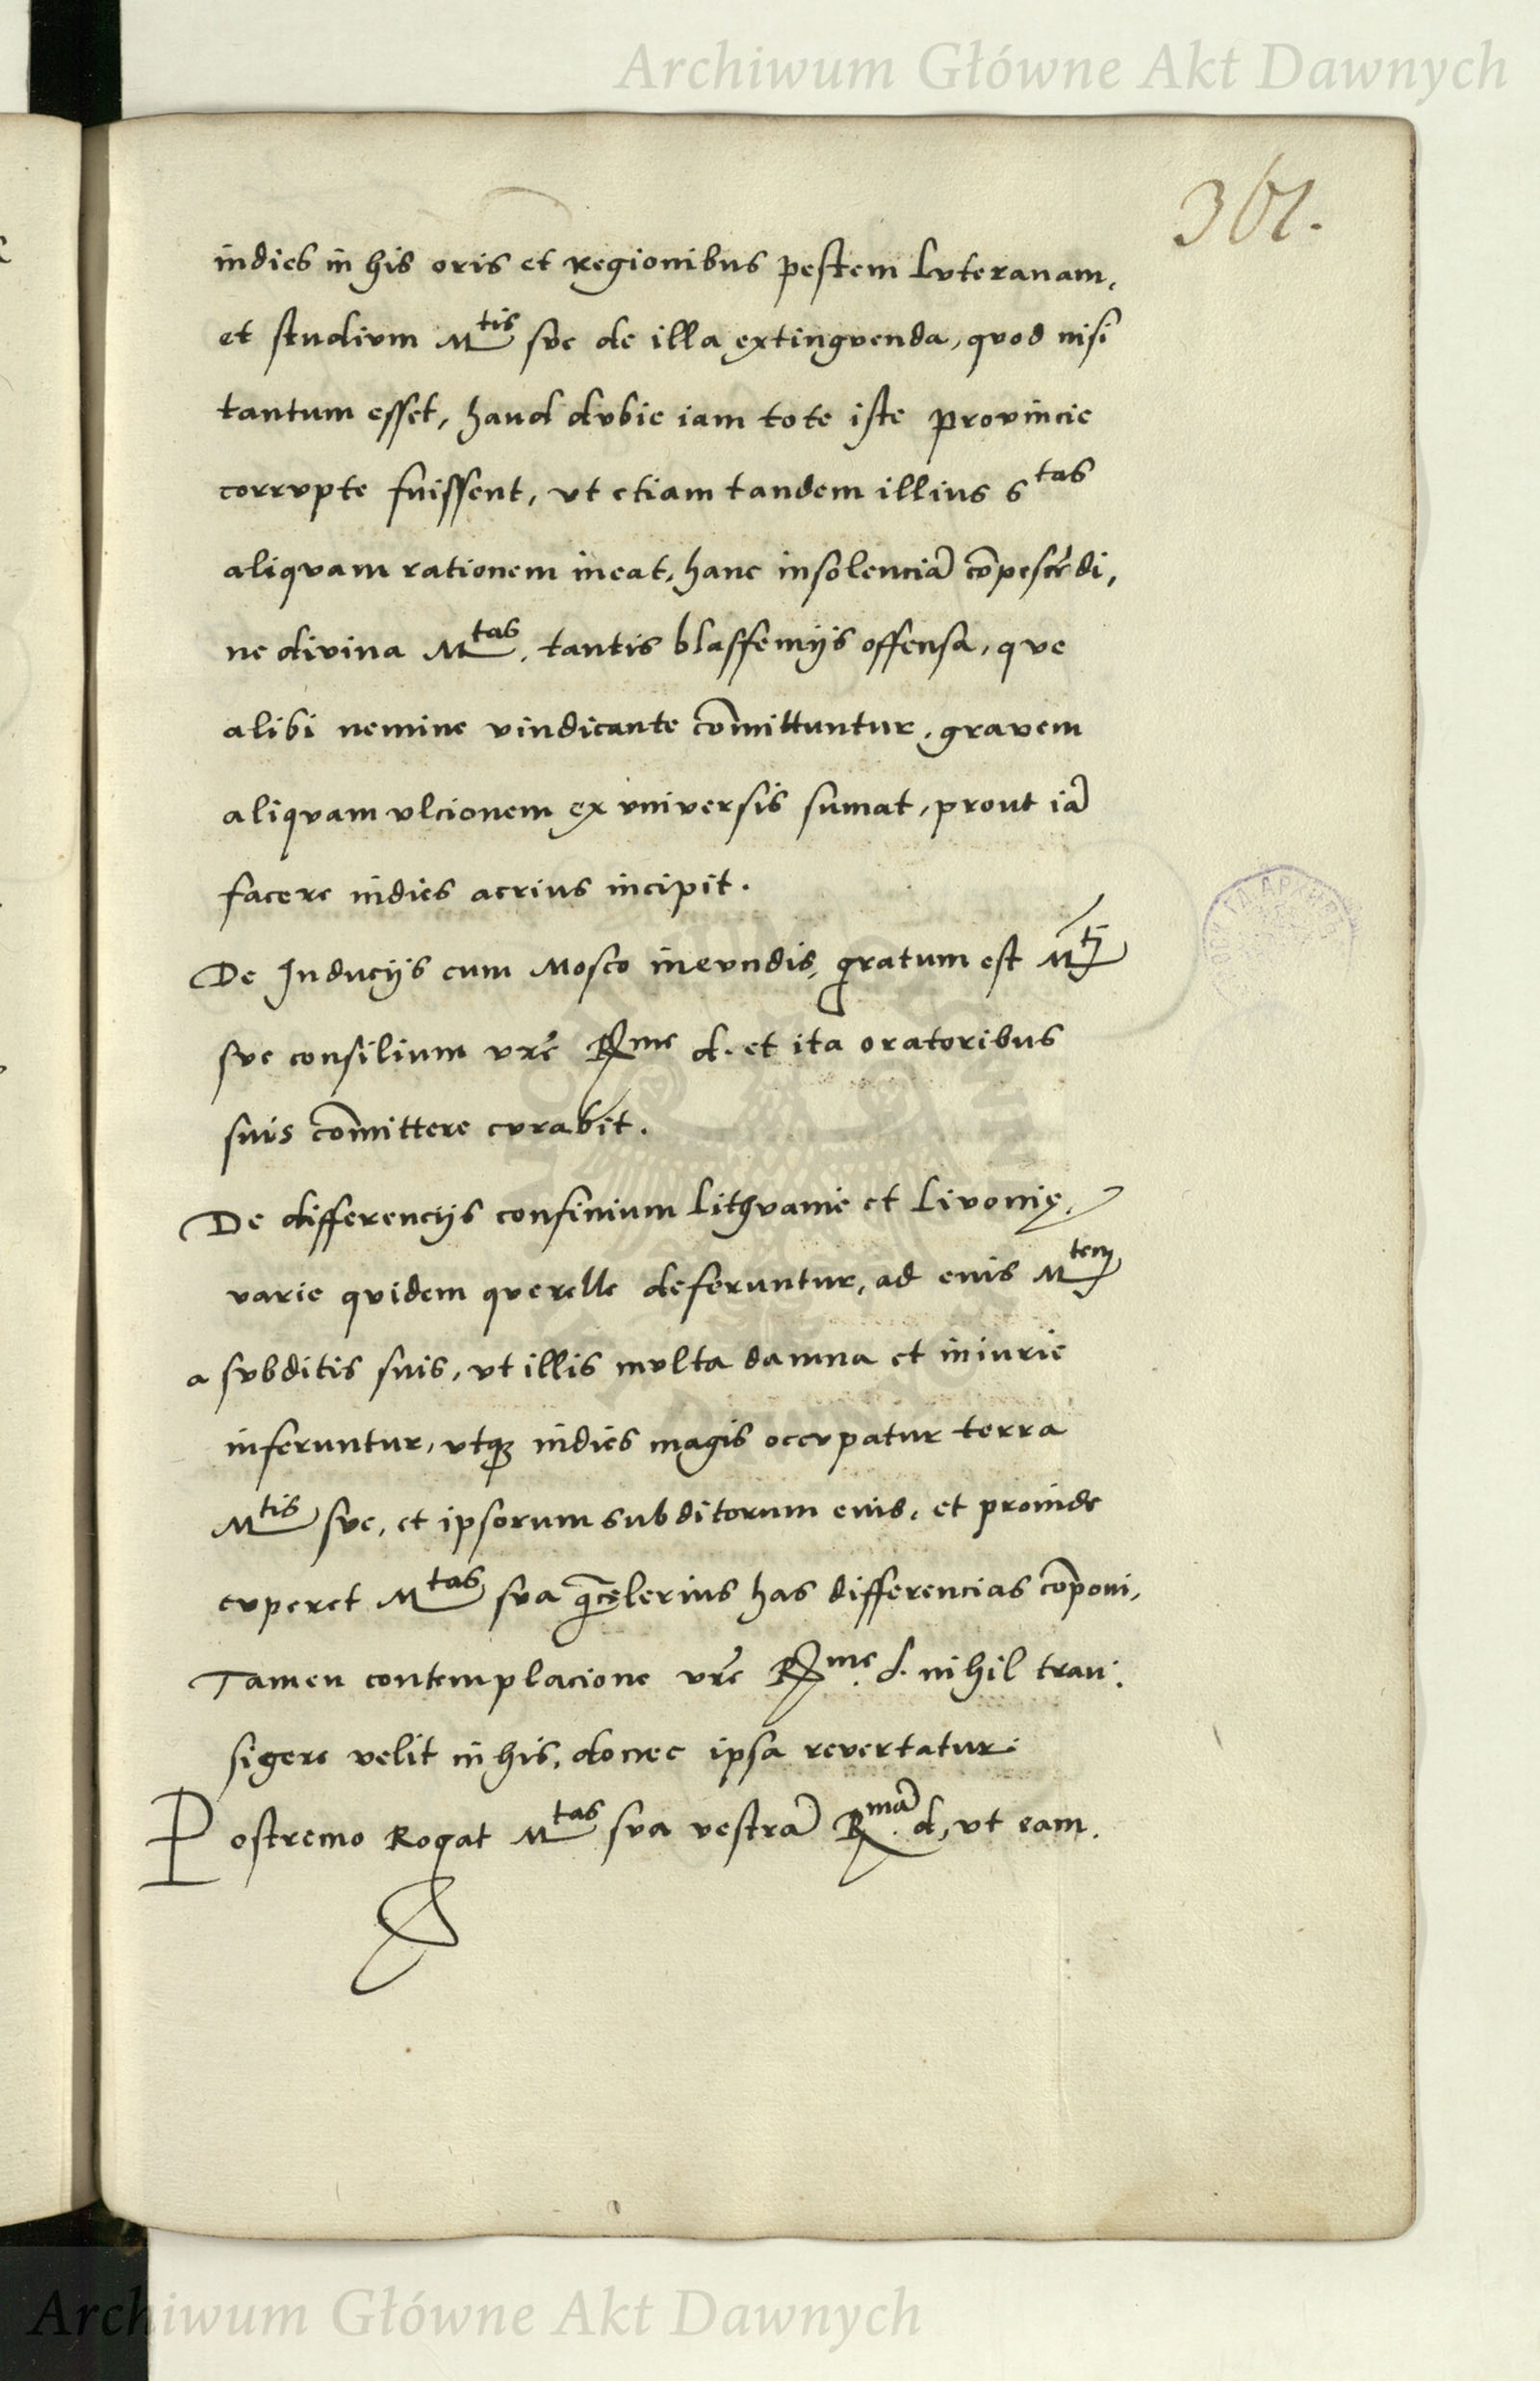 Archiwum Główne Akt Dawnych
361.
indies in his oris et Regionibus pestem luteranam,
et studivm Mtis sve de illa extingvenda, qvod nisi
tantum esset, haud dvbie iam tote iste provincie
corrvpte fuissent, vt etiam tandem illius Stas
aliqvam rationem ineat, hanc insolenciā cōpescēdi,
ne divina Mtas, tantis blasfemijs offensa, qve
alibi nemine vindicante cōmittuntur, gravem
aliqvam vlcionem ex vniversis sumat, prout iā
facere indies acrius incipit.
De Inducijs cum Mosco inevndis, gratum est Mti
sve consilium vrē Rme d. et ita oratoribus
suis cōmittere cvrabit.
De differencijs confinium Lithvanie et Livonię,
varie qvidem qverelle deferuntur, ad eius Mtem
a svbditis suis, vt illis mvlta damna et iniurie
inferuntur, vtqȝ indies magis occvpatur terra
Mtis sve, et ipsorum subditorum eius, et proinde
cvperet Mtas sva q̄cęlerius has differencias cōponi,
Tamen contemplacione vrē Rme. d. nihil tran:
sigere velit in his, donec ipsa revertatur.
Postremo Rogat Mtas sva vestrā Rmā d, vt eam.
Archiwum Główne Akt Dawnych